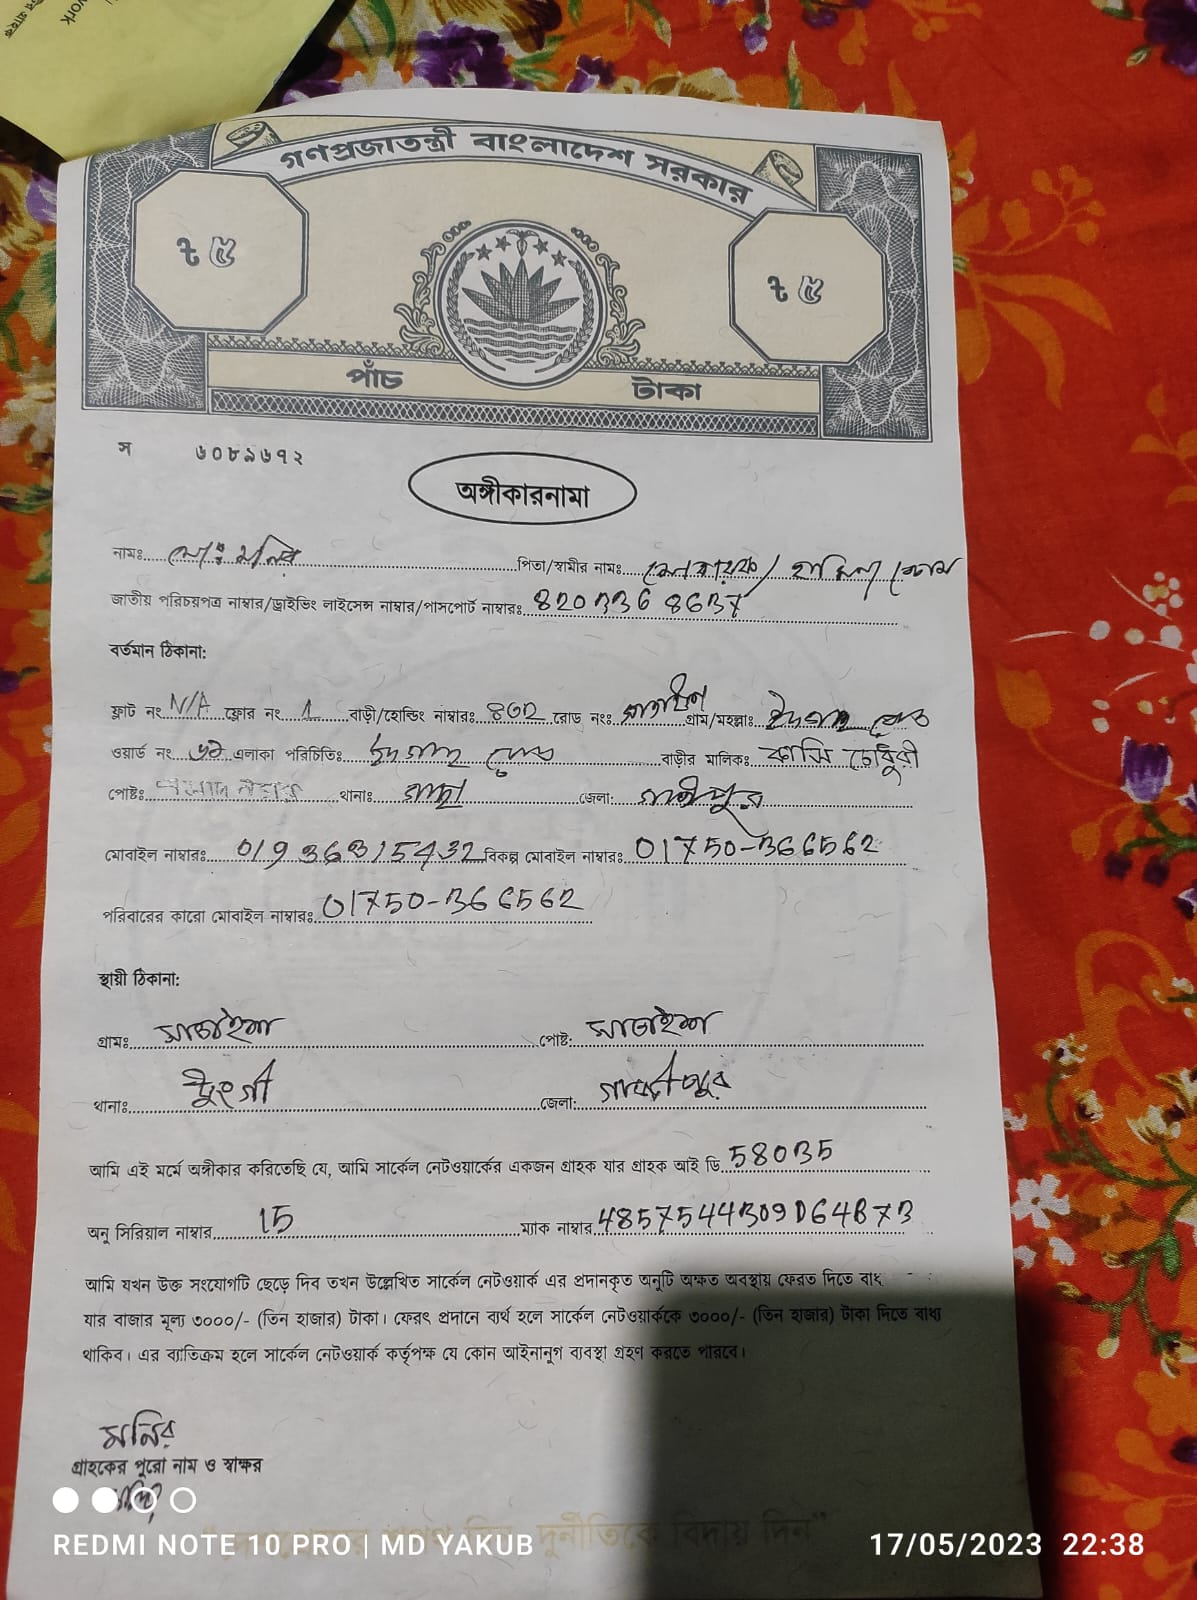 work
গণপ্রজাতন্ত্রী বাংলাদেশ সরকার
৳ ৫ ৳ ৫
পাঁচ টাকা
স ৬০৮৯৬৭২
অঙ্গীকারনামা
নামঃ মোঃ মনির পিতা/স্বামীর নামঃ
জাতীয় পরিচয়পত্র নাম্বার/ড্রাইভিং লাইসেন্স নাম্বার/পাসপোর্ট নাম্বারঃ 8203368637
বর্তমান ঠিকানা:
ফ্লাট নং N/A ফ্লোর নং 1 বাড়ী/হোল্ডিং নাম্বারঃ রোড নংঃ গ্রাম/মহল্লাঃ
ওয়ার্ড নং এলাকা পরিচিতিঃ বাড়ীর মালিকঃ চৌধুরী
পোষ্টঃ থানাঃ গাছা জেলা: গাজীপুর
মোবাইল নাম্বারঃ 01936315432 বিকল্প মোবাইল নাম্বারঃ 01750-366562
পরিবারের কারো মোবাইল নাম্বারঃ 01750-366562
স্থায়ী ঠিকানা:
গ্রামঃ সাতাইশ পোষ্ট: সাতাইশ
থানাঃ টুংগী জেলা: গাজীপুর
আমি এই মর্মে অঙ্গীকার করিতেছি যে, আমি সার্কেল নেটওয়ার্কের একজন গ্রাহক যার গ্রাহক আই ডি 58035
অনু সিরিয়াল নাম্বার 15 ম্যাক নাম্বার 4857544309D64B73
আমি যখন উক্ত সংযোগটি ছেড়ে দিব তখন উল্লেখিত সার্কেল নেটওয়ার্ক এর প্রদানকৃত অনুটি অক্ষত অবস্থায় ফেরত দিতে
যার বাজার মূল্য ৩০০০/- (তিন হাজার) টাকা। ফেরৎ প্রদানে ব্যর্থ হলে সার্কেল নেটওয়ার্ককে ৩০০০/- (তিন হাজার) টাকা দিতে বাধ্য
থাকিব। এর ব্যতিক্রম হলে সার্কেল নেটওয়ার্ক কর্তৃপক্ষ যে কোন আইনানুগ ব্যবস্থা গ্রহণ করতে পারবে।
মনির
গ্রাহকের পুরো নাম ও স্বাক্ষর
দুর্নীতিকে বিদায় দিন"
REDMI NOTE 10 PRO | MD YAKUB 17/05/2023 22:38